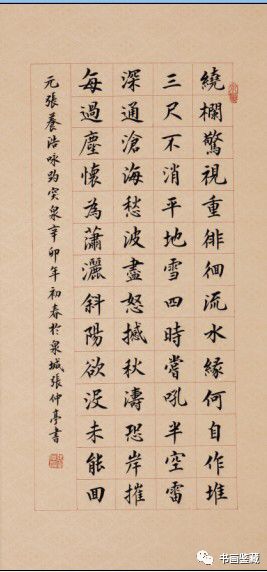 繞欄驚視重徘徊流水緣何自作堆
三尺不消平地雪四時嘗吼半空雷
深通滄海愁波盡怒撼秋濤恐岸摧
每過塵懷為蕭灑斜陽欲沒未能回
元張養浩咏趵突泉辛卯年初春於泉城張仲亭書
书画鉴藏